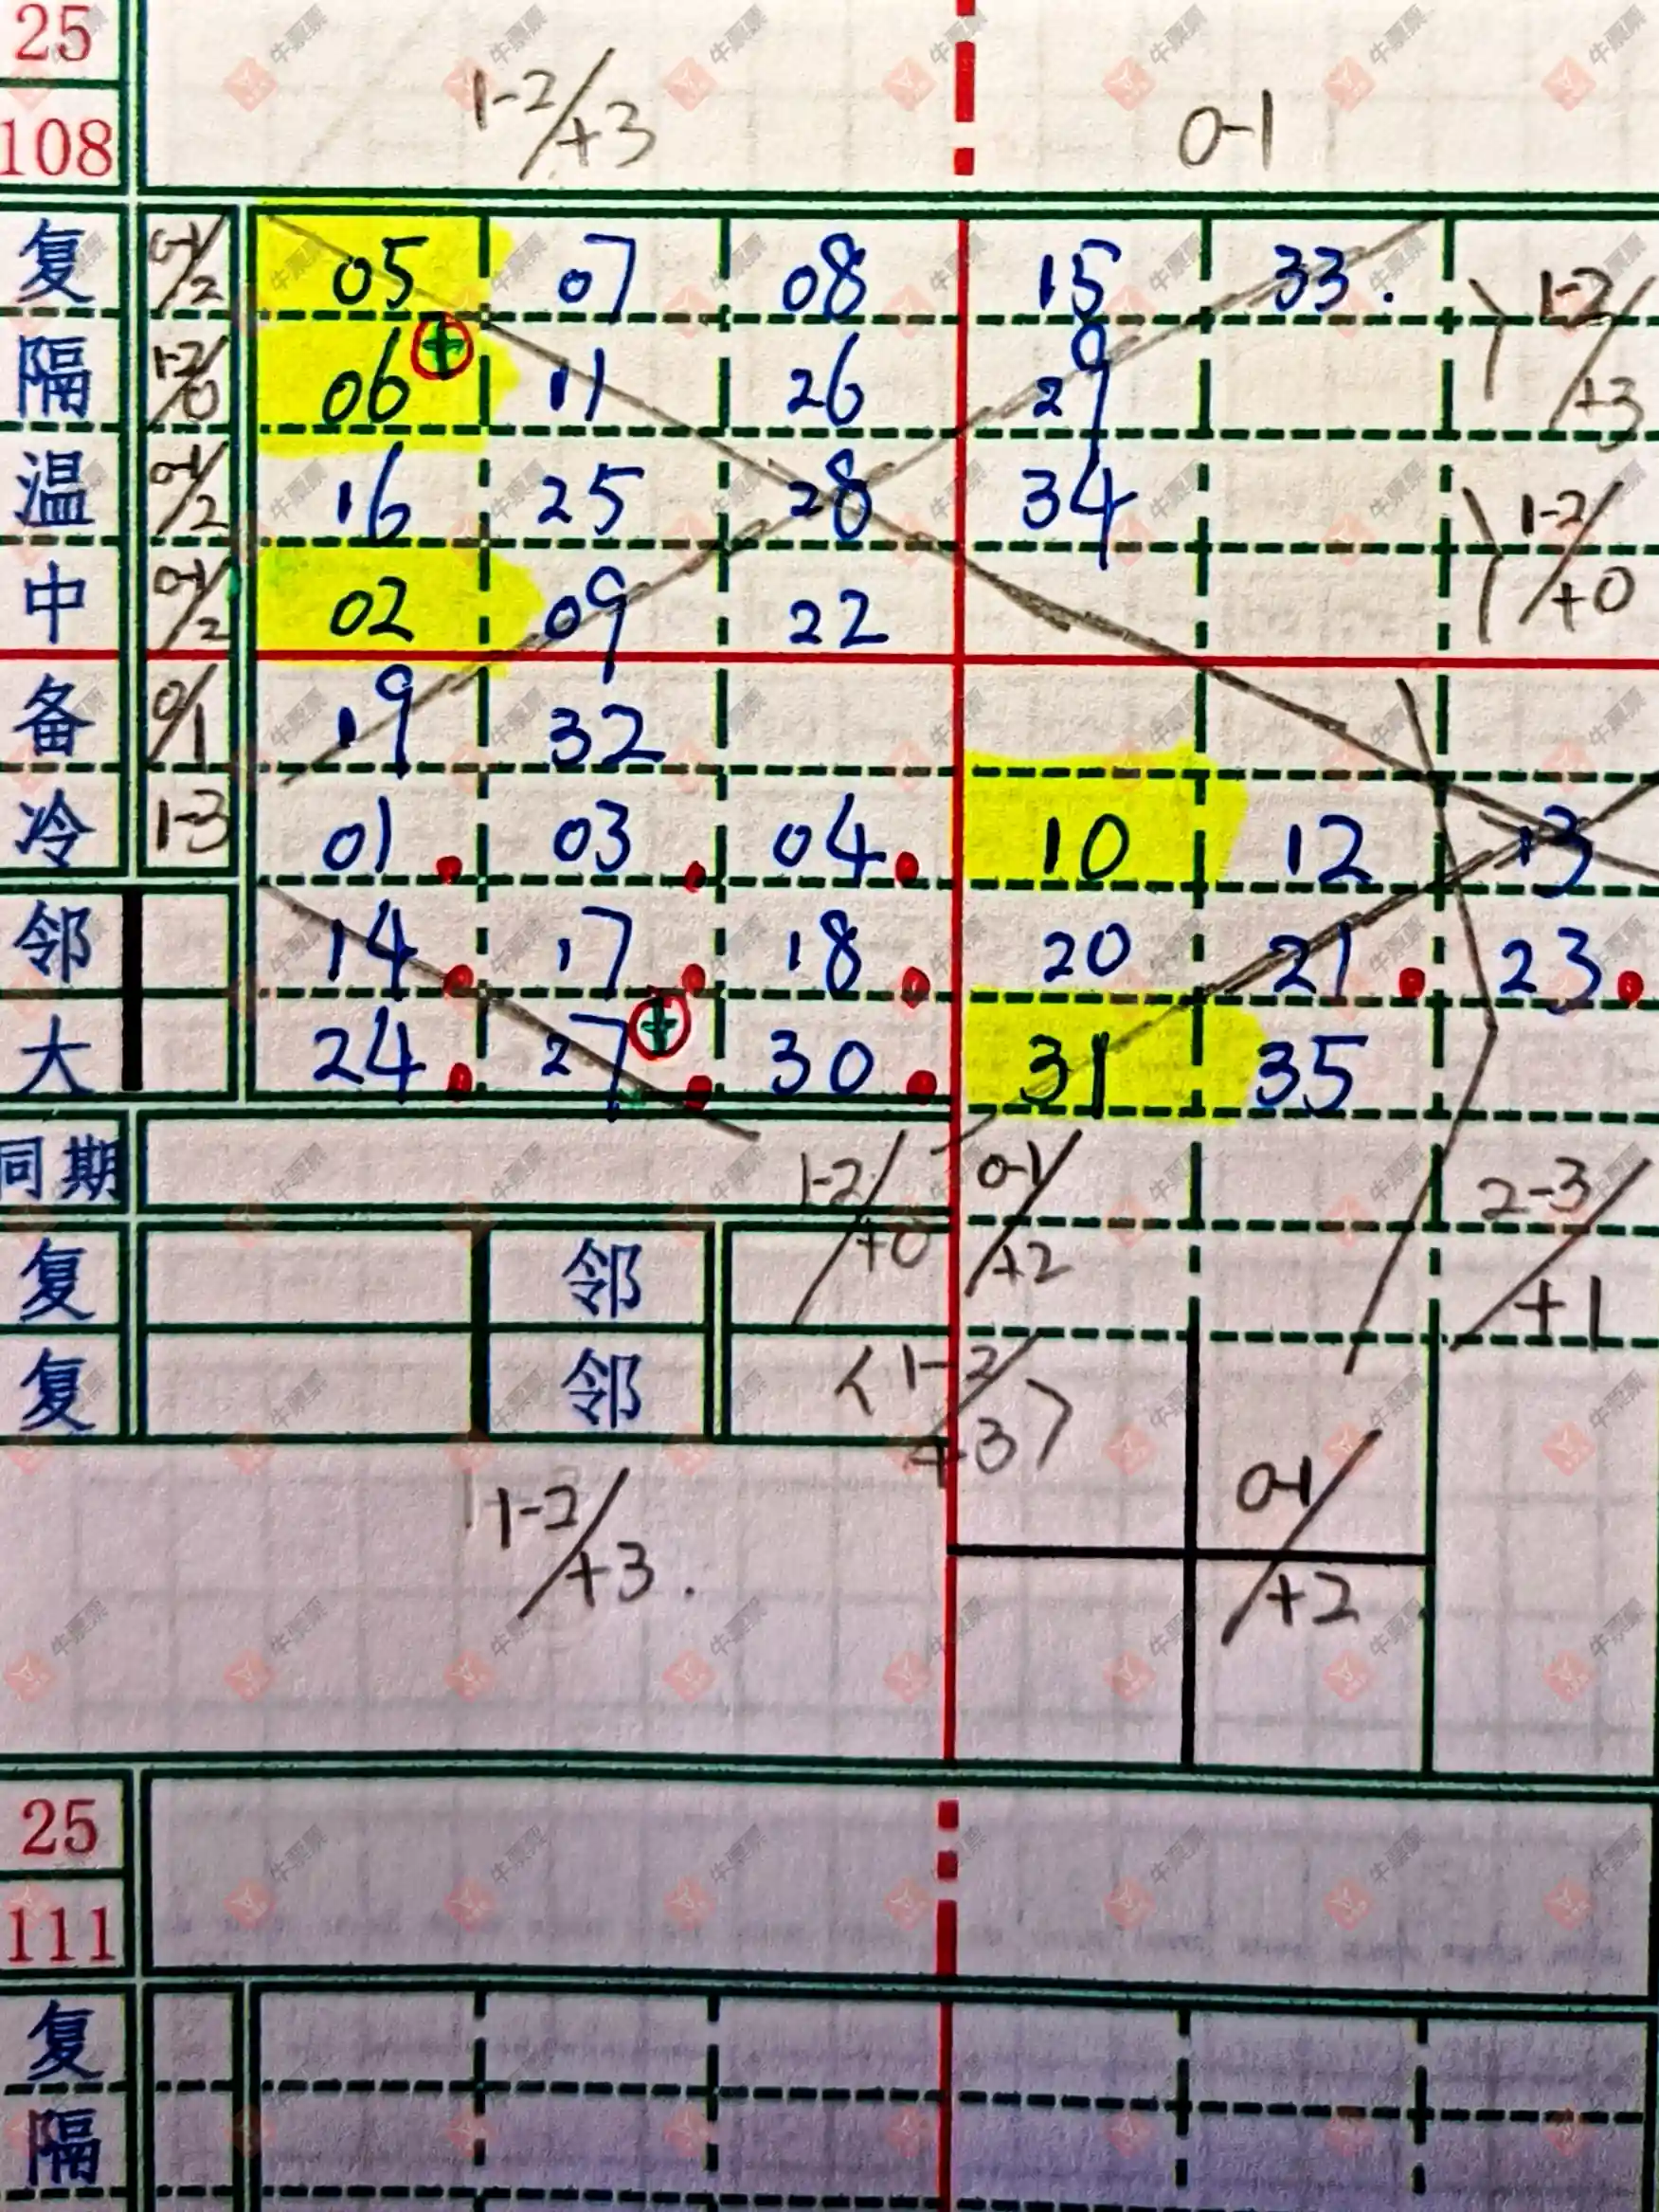 25
108 1-2/+3 0-1
复 0-1/2 05 07 08 15 33. 1-2/+3
隔 1-2/0 06 + 11 26 29
温 0-1/2 16 25 28 34 1-2/+0
中 0-1/2 02 09 22
备 0/1 19 32
冷 1-3 01 03 04 10 12 13
邻 14 17 18 20 21 23
大 24 27 + 30 31 35
同期 1-2/+0 0-1/+2 2-3/+1
复 邻
复 邻 < 1-2/+3 >
1-2/+3. 0-1/+2
25
111
复
隔
牛票票